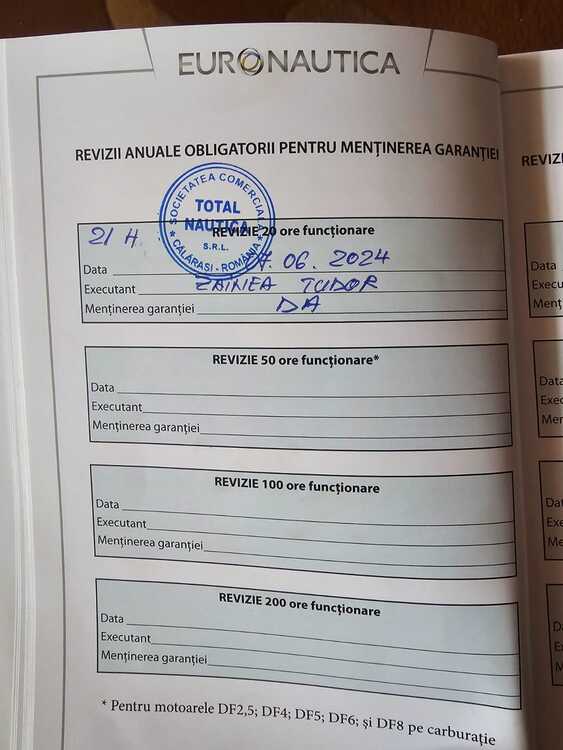 EURONAUTICA
REVIZII ANUALE OBLIGATORII PENTRU MENŢINEREA GARANŢIEI
SOCIETATEA COMERCIALĂ
TOTAL
NAUTICA
S.R.L.
* CĂLĂRASI - ROMÂNIA *
REVIZIE 20 ore funcţionare
21 H.
Data .06.2024
Executant TUDOR
Menţinerea garanţiei DA
REVIZIE 50 ore funcţionare*
Data
Executant
Menţinerea garanţiei
REVIZIE 100 ore funcţionare
Data
Executant
Menţinerea garanţiei
REVIZIE 200 ore funcţionare
Data
Executant
Menţinerea garanţiei
* Pentru motoarele DF2,5; DF4; DF5; DF6; şi DF8 pe carburaţie
REVIZI
Data
Execu
Menţ
Data
Exec
Mer
Dat
Exe
Me
D
E
M